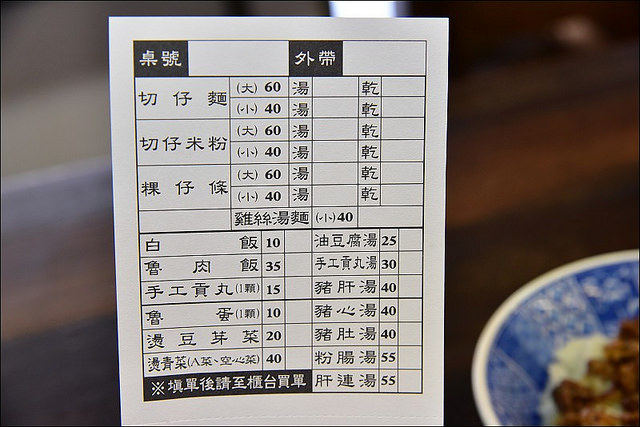 桌號 外帶
切仔麵 (大) 60 湯 乾
(小) 40 湯 乾
切仔米粉 (大) 60 湯 乾
(小) 40 湯 乾
粿仔條 (大) 60 湯 乾
(小) 40 湯 乾
雞絲湯麵 (小) 40
白飯 10 油豆腐湯 25
魯肉飯 35 手工貢丸湯 30
手工貢丸(1顆) 15 豬肝湯 40
魯蛋(1顆) 10 豬心湯 40
燙豆芽菜 20 豬肚湯 40
燙青菜(A菜、空心菜) 40 粉腸湯 55
※填單後請至櫃台買單 肝連湯 55